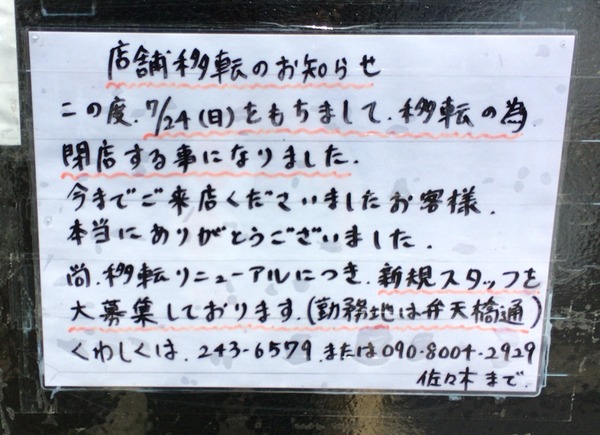 店舗移転のお知らせ
この度、7/24(日)をもちまして、移転の為
閉店する事になりました。
今までご来店くださいましたお客様、
本当にありがとうございました。
尚、移転リニューアルにつき、新規スタッフを
大募集しております。(勤務地は弁天橋通)
くわしくは、243-6579、または090-8004-2929
佐々木まで。